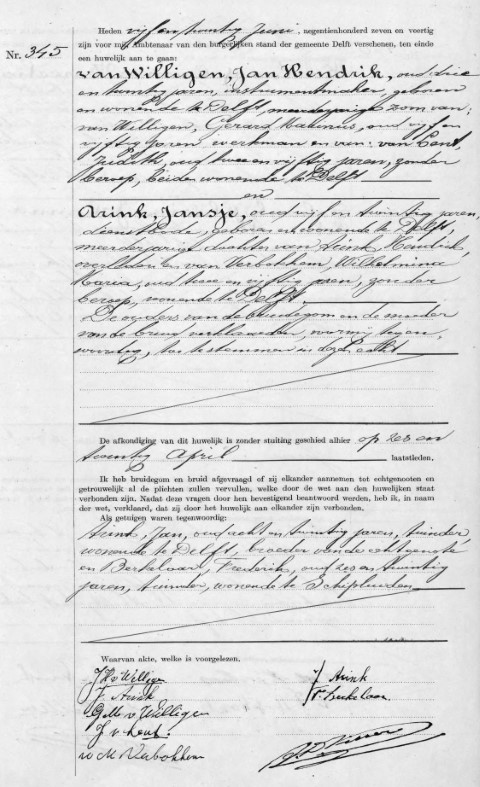 Nr. 345
Heden vijf en twintig Juni, negentienhonderd zeven en veertig
zijn voor mij Ambtenaar van den burgerlijken stand der gemeente Delft verschenen, ten einde
een huwelijk aan te gaan:
van Willigen, Jan Hendrik, oud drie
en twintig jaren, instrumentmaker, geboren
en wonende te Delft, meerderjarige zoon van:
van Willigen, Gerard Marinus, oud vijf en
vijftig jaren, werkman en van: van Lent,
Judith, oud twee en vijftig jaren, zonder
beroep, beiden wonende te Delft
en
Arink, Jansje, oud vijf en twintig jaren,
dienstbode, geboren en wonende te Delft,
meerderjarige dochter van Arink, Hendrik,
overleden en van Verbokkem, Wilhelmina
Maria, oud twee en vijftig jaren, zonder
beroep, wonende te Delft.
De ouders van de bruidegom en de moeder
van de bruid verklaarden, voor mij tegen-
woordig, toe te stemmen in deze echt.
De afkondiging van dit huwelijk is zonder stuiting geschied alhier op zes en
twintig April laatstleden.
Ik heb bruidegom en bruid afgevraagd of zij elkander aannemen tot echtgenooten en
getrouwelijk al de plichten zullen vervullen, welke door de wet aan den huwelijken staat
verbonden zijn. Nadat deze vragen door hen bevestigend beantwoord werden, heb ik, in naam
der wet, verklaard, dat zij door het huwelijk aan elkander zijn verbonden.
Als getuigen waren tegenwoordig:
Arink, Jan, oud acht en twintig jaren, tuinder,
wonende te Delft, broeder van de echtgenote
en Berkelaar, Frederik, oud zes en twintig
jaren, tuinder, wonende te Schipluiden.
Waarvan akte, welke is voorgelezen.
J H v Willigen
J. Arink
J. Arink
F. Berkelaar
G M v Willigen
J v Lent
W M Verbokkem